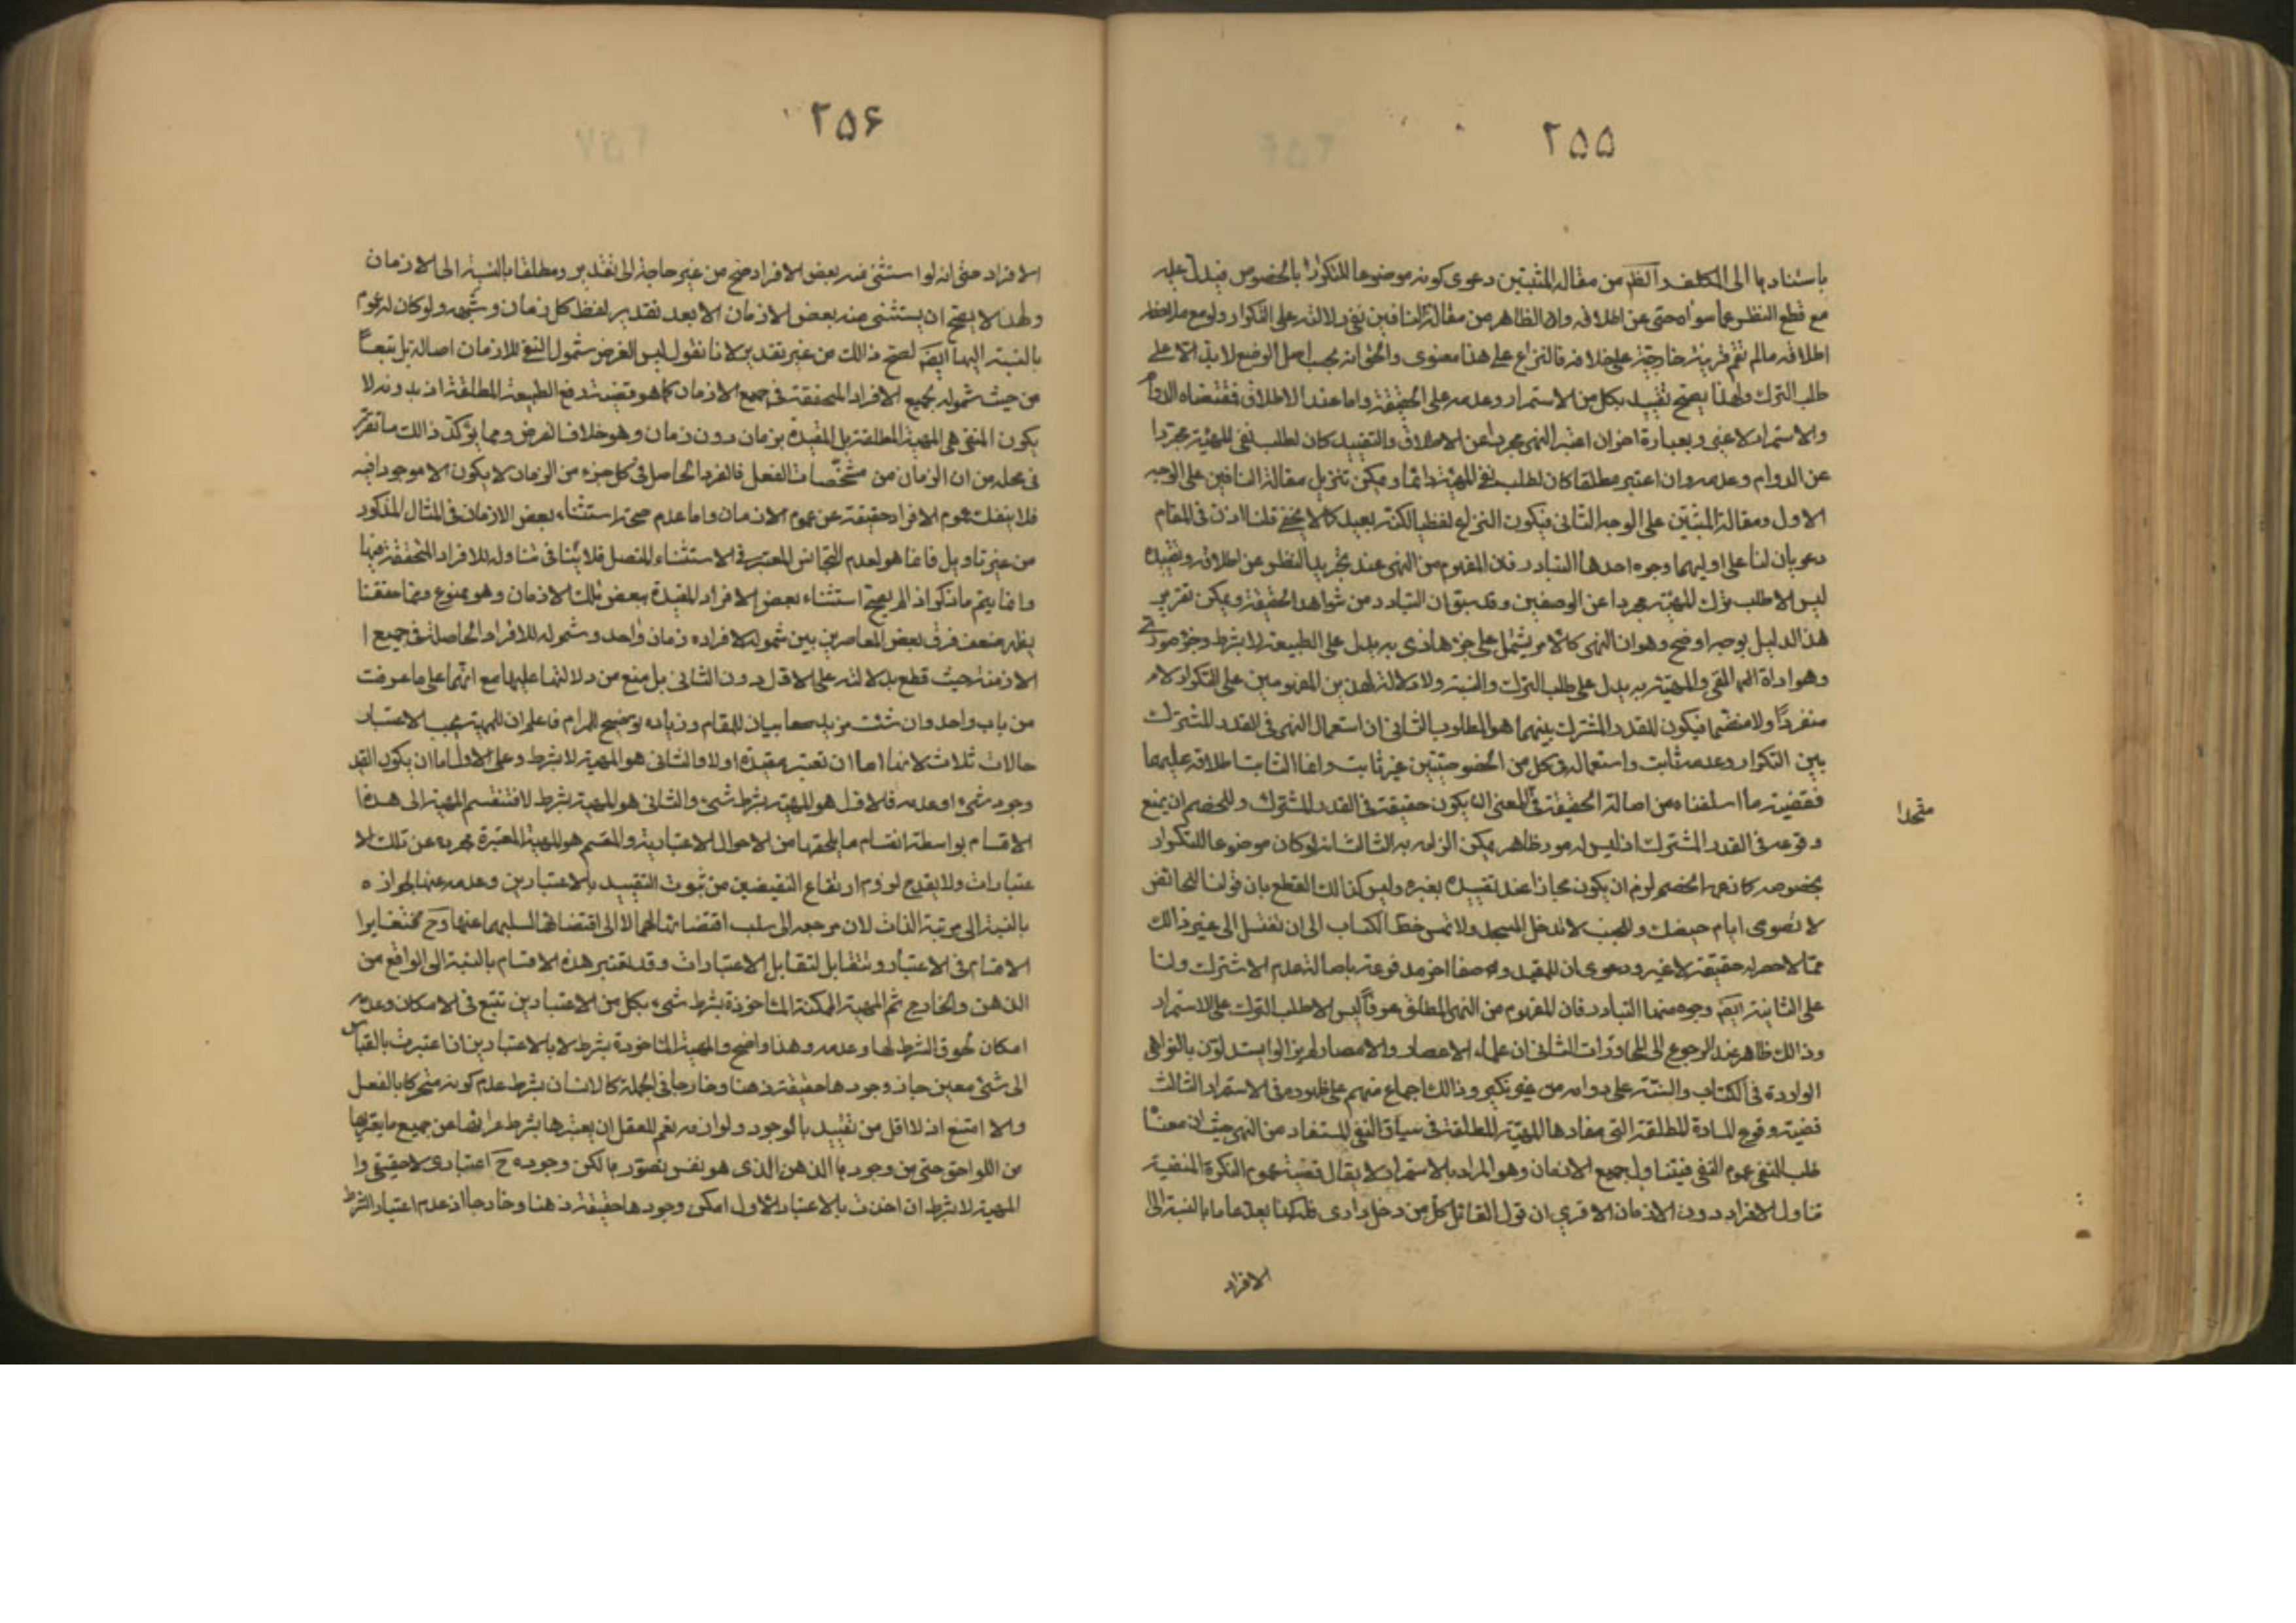 ٢٥٥
باسنادها الى المكلف والظ من مقالة المثبتين دعوى كونه موضوعا للتكرار بالخصوص فيدل عليه
مع قطع النظر عما سواه حتى عن اطلاقه وان الظاهر من مقالة النافين نفى دلالته على التكرار ولو مع ملاحظة
اطلاقه مالم تقم قرينة خارجية على خلافه فالنزاع على هذا معنوى والحق انه بحسب اصل الوضع لا يدل الا على
طلب الترك ولهذا يصح تقييده بكل من الاستمرار وعدمه على الحقيقة واما عند الاطلاق فمقتضاه الدوام
والاستمرار لا غير وبعبارة اخرى ان اعتبر النهى مجردا عن الاطلاق والتقييد كان لطلب نفى المهية مجردا
عن الدوام وعدمه وان اعتبر مطلقا كان لطلب نفى المهية دائما ويمكن تنزيل مقالة النافين على الوجه
الاول ومقالة المثبتين على الوجه الثانى فيكون النزاع لفظيا لكنه بعيد كما لا يخفى فلنا اذن فى المقام
دعويان لنا على اوليهما وجوه احدها التبادر فان المفهوم من النهى عند تجريد النظر عن اطلاقه وتقييده
ليس الا طلب ترك المهية مجردا عن الوصفين وقد سبق ان التبادر من شواهد الحقيقة ويمكن تقرير
هذا الدليل بوجه اوضح وهو ان النهى كالامر يشتمل على جزء مادى به يدل على الطبيعة لا بشرط وجزء صورى
وهو اداة النهى والهيئة به يدل على طلب الترك والنسبة ولا دلالة لهذين المفهومين على التكرار لا
منفردا ولا منضما فيكون للقدر المشترك بينهما هو المطلوب الثانى ان استعمال النهى فى القدر المشترك
بين التكرار وعدمه ثابت واستعماله فى كل من الخصوصيتين غير ثابت وانما الثابت اطلاقه عليهما
فقضية ما اسلفناه من اصالة الحقيقة فى المعنى ان يكون حقيقة فى القدر المشترك وللخصم ان يمنع
متحدا
وقوعه فى القدر المشترك اذ ليس له مورد ظاهر يمكن الزامه به الثالث انه لو كان موضوعا للتكرار
بخصوصه كما زعمه الخصم لزم ان يكون مجازا عند تقييده بغيره وليس كذلك للقطع بان قولنا للحائض
لا تصومى ايام حيضك وللجنب لا تدخل المسجد ولا تمس خط الكتاب الى ان تغتسل الى غير ذالك
مما لا حصر له حقيقة لا غير ودعوى ان للمقيد وضعا اخر مدفوعة باصالة عدم الاشتراك ولنا
على الثانية ايضا وجوه منها التبادر فان المفهوم من النهى المطلق عرفا ليس الا طلب الترك على الاستمرار
وذالك ظاهر عند الرجوع الى المحاورات الثانى ان علماء الاعصار والامصار لم يزالوا يستدلون بالنواهى
الواردة فى الكتاب والسنة على دوامه من غير نكير وذالك اجماع منهم على ظهوره فى الاستمرار الثالث
قضية وقوع المادة المطلقة التى مفادها المهية المطلقة فى سياق النفى المستفاد من النهى حيث ان معناه
طلب النفى عموم النفى فيتناول جميع الازمان وهو المراد بالاستمرار لا يقال قضية عموم النكرة المنفية
تناول الافراد دون الازمان الا ترى ان قول القائل كل من دخل دارى فله كذا يعد عاما بالنسبة الى
الافراد
٢٥۶
الافراد حتى انه لو استثنى منه بعض الافراد صح من غير حاجة الى تقدير ومطلقا بالنسبة الى الازمان
ولهذا لا يصح ان يستثنى منه بعض الازمان الا بعد تقدير لفظ كل زمان وشبهه ولو كان له عموم
بالنسبة اليها ايضا لصح ذالك من غير تقدير لانا نقول ليس الغرض شمول النفى للازمان اصالة بل تبعا
من حيث شموله لجميع الافراد المتحققة فى جميع الازمان كما هو قضية رفع الطبيعة المطلقة اذ بدونه لا
يكون المنفى هى المهية المطلقة بل المقيدة بزمان دون زمان وهو خلاف الفرض ومما يؤكد ذالك ما تقرر
فى محله من ان الزمان من مشخصات الفعل فالفرد الحاصل فى كل جزء من الزمان لا يكون الا موجودا فيه
فلا ينفك عموم الافراد حقيقة عن عموم الازمان واما عدم صحة استثناء بعض الازمان فى المثال المذكور
من غير تاويل فانما هو لعدم التجانس المعتبر فى الاستثناء المتصل فلا ينافى تناوله للافراد المتحققة فيها
وانما يتم ما ذكر اذا لم يصح استثناء بعض الافراد المقيدة ببعض تلك الازمان وهو ممنوع ومما حققنا
يظهر ضعف فرق بعض المعاصرين بين شموله لافراده زمان واحد وشموله للافراد الحاصلة فى جميع ا
الازمنة حيث قطع بدلالته على الاول دون الثانى بل منع من دلالتها عليها مع انهما على ما عرفت
من باب واحد وان شئت مزيد بيان للمقام وزياده توضيح للمرام فاعلم ان للمهية بحسب الاعتبار
حالات ثلاث لانها اما ان تعتبر مقيدة اولا والثانى هو المهية لا بشرط وعلى الاول اما ان يكون القيد
وجود شىء او عدمه فالاول هو المهية بشرط شىء والثانى هو المهية بشرط لا فتنقسم المهية الى هذه
الاقسام بواسطة انقسام ما يلحقها من الاحوال الاعتبارية والمقسم هو المهية المعتبرة مجردة عن تلك الا
عتبارات ولا يقدح لزوم ارتفاع النقيضين من ثبوت التقييد بالاعتبارين وعدمه عنها لجوازه
بالنسبة الى مرتبة الذات لان مرجعه الى سلب اقتضائها لهما لا الى اقتضائها لسلبهما عنها وح فتغايرا
الاقسام فى الاعتبار وتتقابل لتقابل الاعتبارات وقد تعتبر هذه الاقسام بالنسبة الى الواقع من
الذهن والخارج ثم المهية الممكنة الماخوذة بشرط شىء بكل من الاعتبارين تتبع فى الامكان وعدمه
امكان لحوق الشرط لها وعدمه وهذا واضح والمهية الماخوذة بشرط لا بالاعتبارين ان اعتبرت بالقياس
الى شئ معين جاز وجودها حقيقة ذهنا وخارجا فى الجملة كالانسان بشرط عدم كونه متحركا بالفعل
والا امتنع اذ لا اقل من تقييده بالوجود ولو انه نعم للعقل ان يعتبرها بشرط عرائها من جميع ما يعتريها
من اللواحق حتى من وجودها الذهن الذى هو نفس تصورها لكن وجوده ح اعتبارى لا حقيقى وا
المهية لا بشرط ان اخذت بالاعتبار الاول امكن وجودها حقيقة ذهنا وخارجا اذ عدم اعتبار الشرط